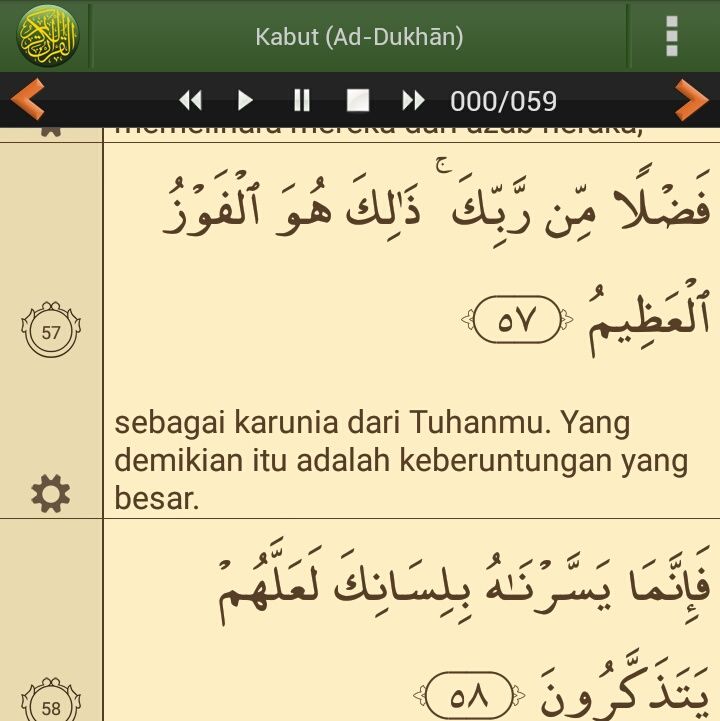 Kabut (Ad-Dukhān)
000/059
memelihara mereka dari azab neraka,
فَضْلًا مِّن رَّبِّكَ ۚ ذَٰلِكَ هُوَ ٱلْفَوْزُ
ٱلْعَظِيمُ ٥٧
57
sebagai karunia dari Tuhanmu. Yang
demikian itu adalah keberuntungan yang
besar.
فَإِنَّمَا يَسَّرْنَٰهُ بِلِسَانِكَ لَعَلَّهُمْ
يَتَذَكَّرُونَ ٥٨
58